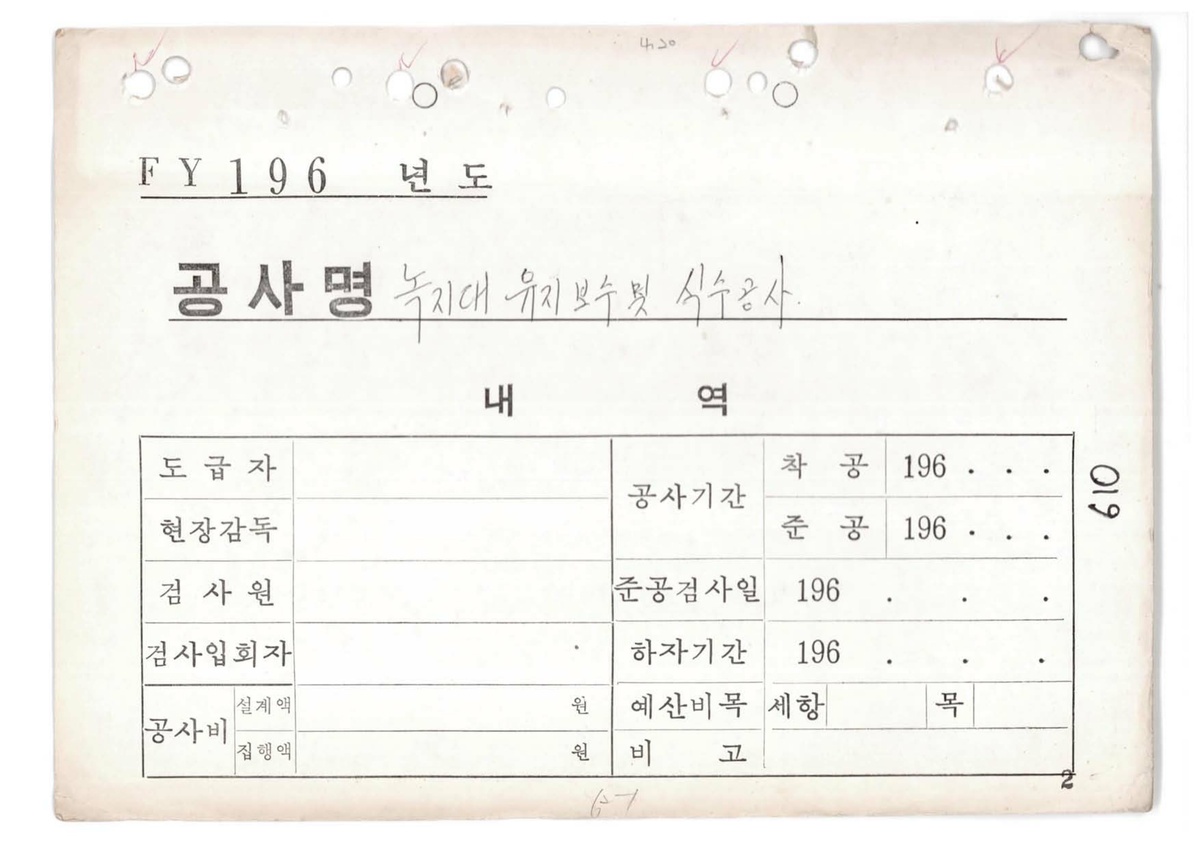 4.20
FY 196 년도
공사명 녹지대 유지보수 및 식수공사.
내 역
도급자 공사기간 착공 196 . . .
현장감독 준공 196 . . .
검사원 준공검사일 196 . . .
검사입회자 하자기간 196 . . .
공사비 설계액 원 예산비목 세항 목
집행액 원 비고
019
2